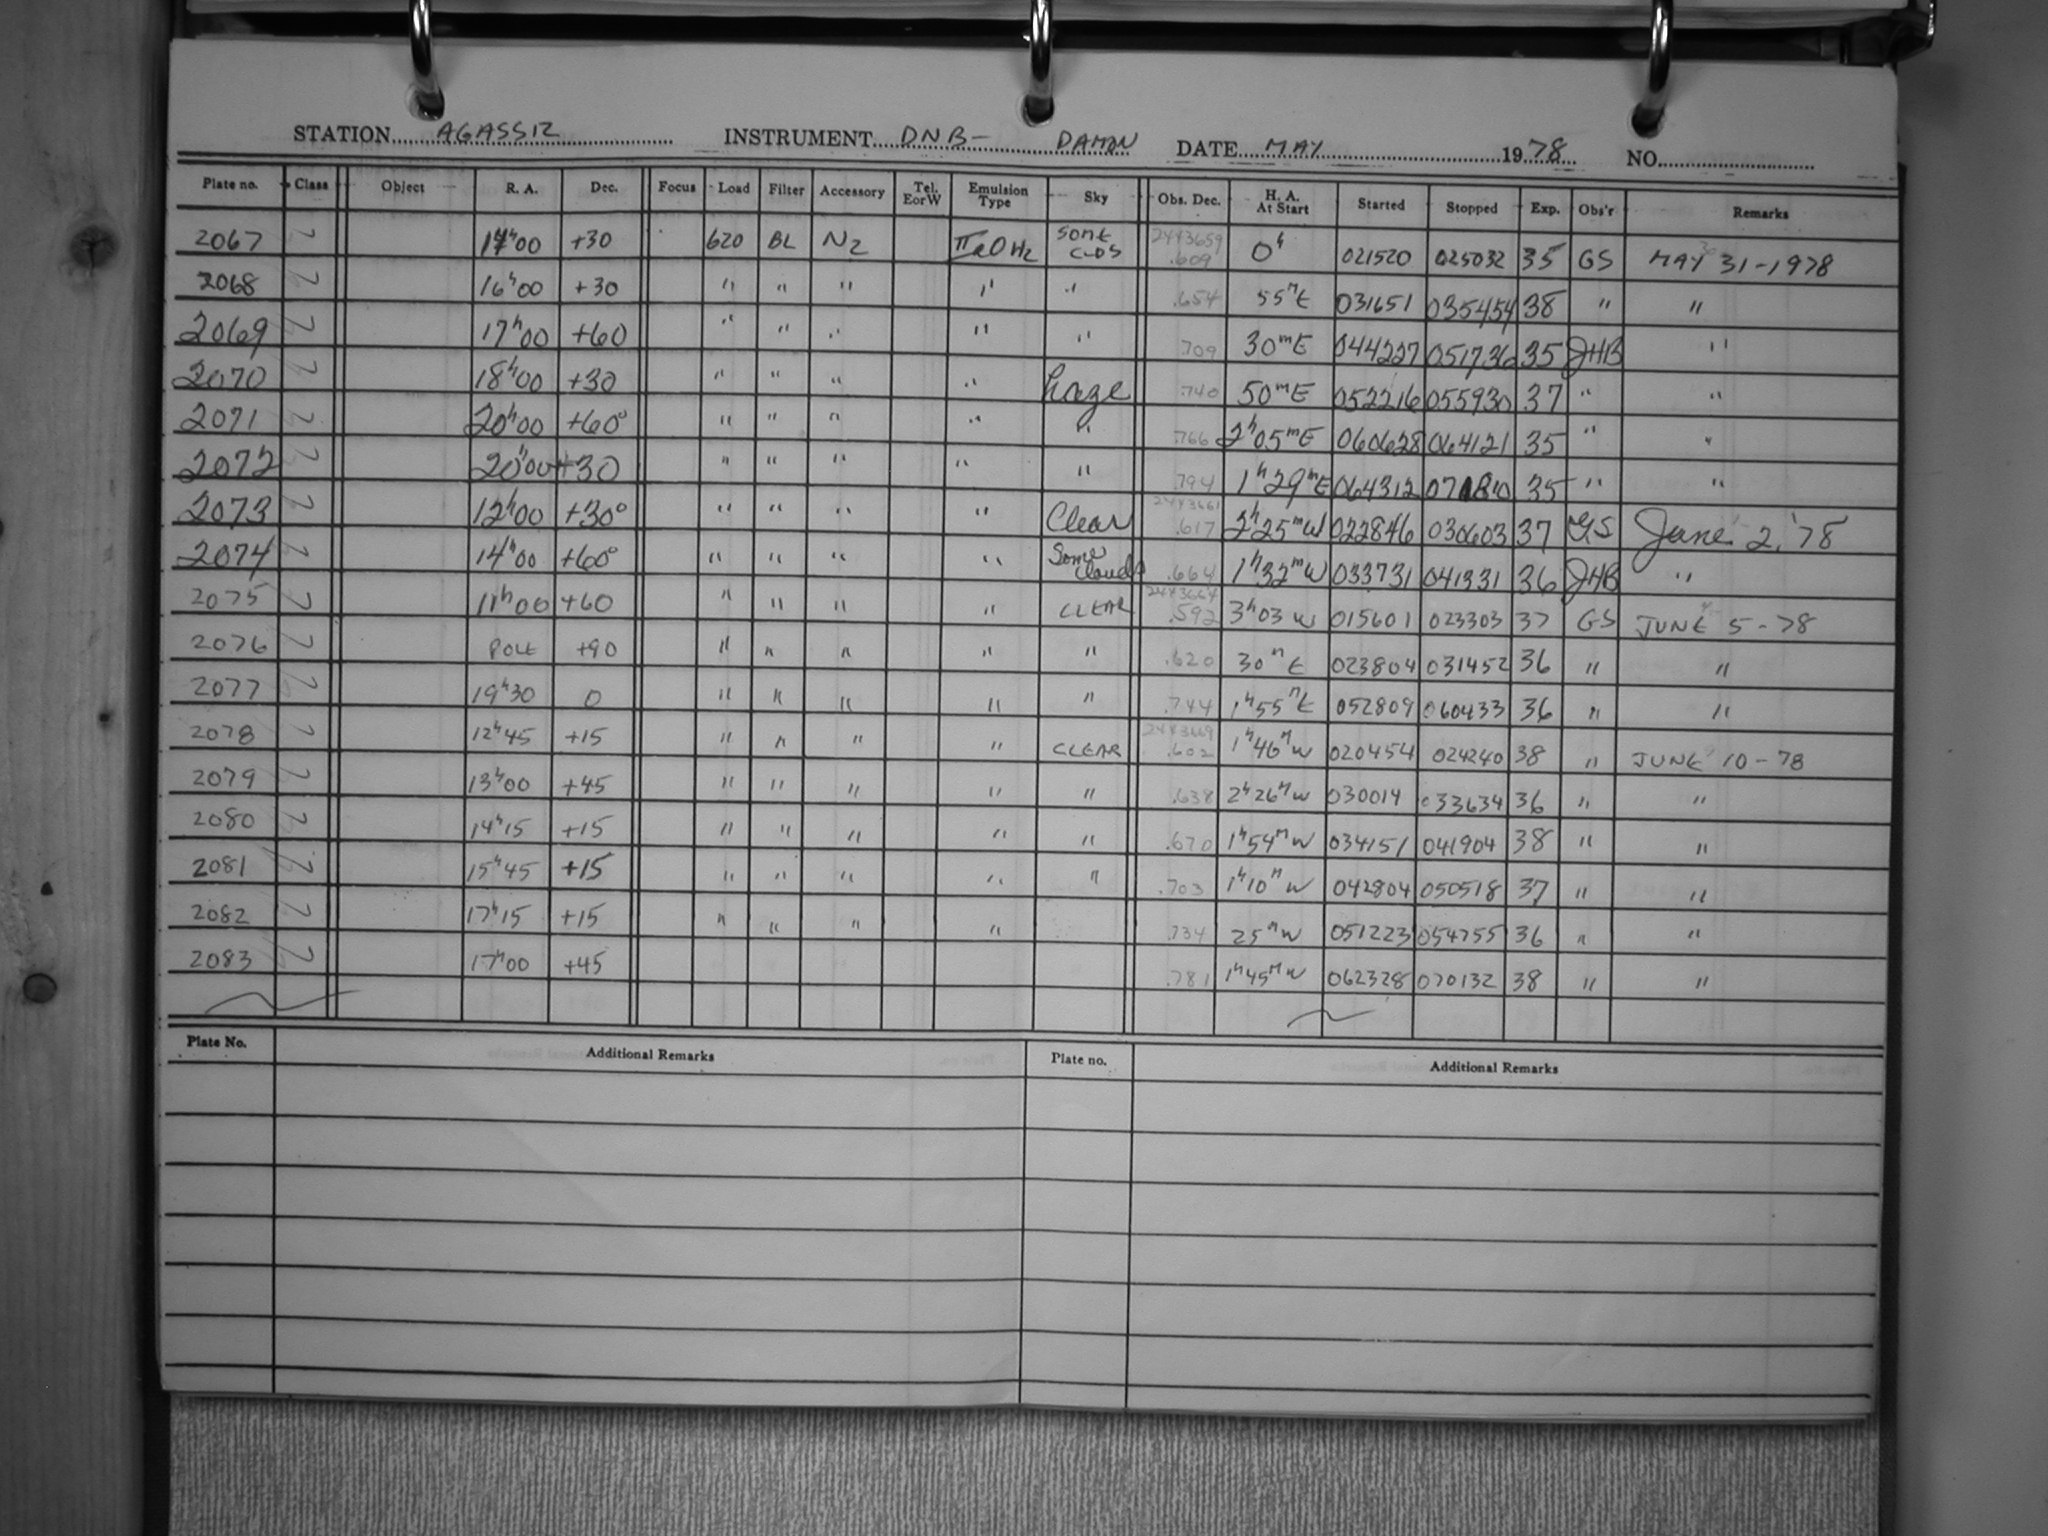 STATION AGASSIZ INSTRUMENT DNB- DAMON DATE MAY 1978 NO.
Plate no. Class Object R. A. Dec. Focus Load Filter Accessory Tel. EorW Emulsion Type Sky Obs. Dec. H. A. At Start Started Stopped Exp. Obs'r Remarks
2067 14ʰ00 +30 620 BL N2 IIaO H2 SOME CLDS 2443659 .609 0ʰ 021520 025032 35 GS MAY 31-1978
2068 16ʰ00 +30 " " " " " .654 55ᵐE 031651 035454 38 " "
2069 17ʰ00 +60 " " " " " .709 30ᵐE 044227 051736 35 JHB "
2070 18ʰ00 +30 " " " " haze .740 50ᵐE 052216 055930 37 " "
2071 20ʰ00 +60° " " " " " .766 2ʰ05ᵐE 060628 064121 35 " "
2072 20ʰ00 +30 " " " " " .794 1ʰ29ᵐE 064312 35 " "
2073 12ʰ00 +30° " " " " Clear 2443661 .617 2ʰ25ᵐW 022846 030603 37 GS June 2, '78
2074 14ʰ00 +60° " " " " Some Clouds .664 1ʰ32ᵐW 033731 041331 36 JHB "
2075 11ʰ00 +60 " " " " CLEAR 2443664 .592 3ʰ03 W 015601 023303 37 GS JUNE 5-78
2076 POLE +90 " " " " " .620 30ᵐE 023804 031452 36 " "
2077 19ʰ30 0 " " " " " .744 1ʰ55ᵐE 052809 060433 36 " "
2078 12ʰ45 +15 " " " " CLEAR 2443669 .602 1ʰ46ᵐW 020454 024240 38 " JUNE 10-78
2079 13ʰ00 +45 " " " " " .638 2ʰ26ᵐW 030014 033634 36 " "
2080 14ʰ15 +15 " " " " " .670 1ʰ54ᵐW 034151 041904 38 " "
2081 15ʰ45 +15 " " " " " .703 1ʰ10ᵐW 042804 050518 37 " "
2082 17ʰ15 +15 " " " " .734 25ᵐW 051223 054755 36 " "
2083 17ʰ00 +45 .781 1ʰ45ᵐW 062328 070132 38 " "
Plate No. Additional Remarks Plate no. Additional Remarks